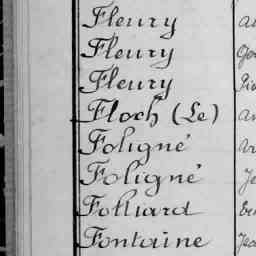 Fleury
Fleury
Fleury
Floch (Le)
Foligné
Foligné
Folliard
Fontaine